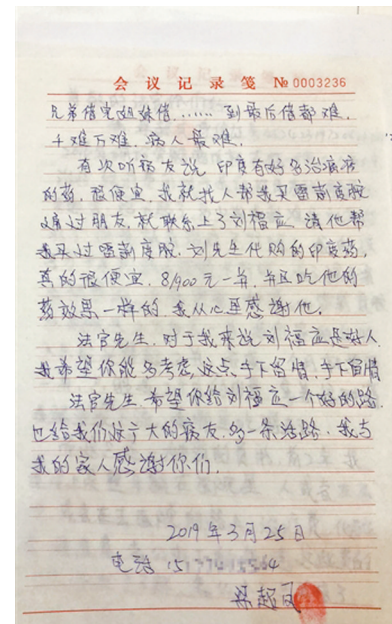 会议记录笺 №0003236
兄弟借完姐妹借……到最后借都难.
千难万难.病人最难.
有次听病友说 印度有好多治癌症
的药.很便宜.我就找人帮我买雷利度胺
通过朋友.就联系上了刘福应.请他帮
我买过雷利度胺.刘先生代购的印度药.
真的很便宜.8/900元一并.并且吃他的
药效果一样的.我从心里感谢他.
法官先生.对于我来说刘福应是好人
我希望你能多考虑.这点.手下留情.手下留情
法官先生.希望你给刘福应一个好的路.
也给我们这广大的病友.多一条活路.我与
我的家人感谢你们.
2019年3月25日
电话